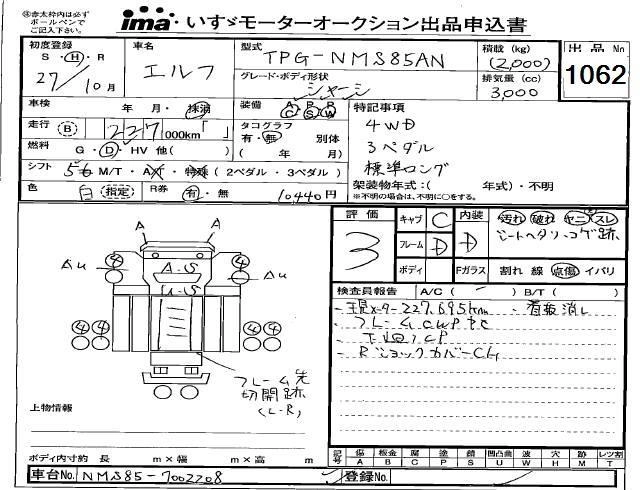 ㊟赤太枠内は必ず
ボールペンで
ご記入下さい。
ima いすゞモーターオークション出品申込書
初度登録
S・H・R
27/10月
車名
エルフ
型式
TPG-NMS85AN
グレード・ボディ形状
シャーシ
積載(kg)
(2,000)
排気量(cc)
3,000
出品No
1062
車検
年・月・抹消
装備
A P R
C S W
走行
(B) 227 000km「 」
タコグラフ
有・無 別体
( 年 月)
燃料
G・D・HV 他( )
シフト
M/T・A/T・特殊(2ペダル・3ペダル)
色
白 (指定)
R券
有・無 10440円
特記事項
4WD
3ペダル
標準ロング
架装物年式:( 年式)・不明
※不明の場合は、不明に○をする。
評価
3
キャブ C
フレーム D
ボディ
内装 D
Fガラス
汚れ 破れ ヤニ スレ
シートヘタリ・コゲ跡
割れ 線 点傷 イバリ
検査員報告 A/C( ) B/T( )
メーター227,695km ・看板消し
・フレーム
・下廻りCP
・RショックカバーC
A A
④ ④
Au A-S Au
④④ ④④
フレーム先
切開跡
(L・R)
上物情報
ボディ内寸約 長 m×幅 m×高 m
記号
傷 板金 腐 塗 錆 凹凸曲 波 穴 跡 レツ割
A B C P S U W H M T
車台No. NMS85-7002208
登録No.